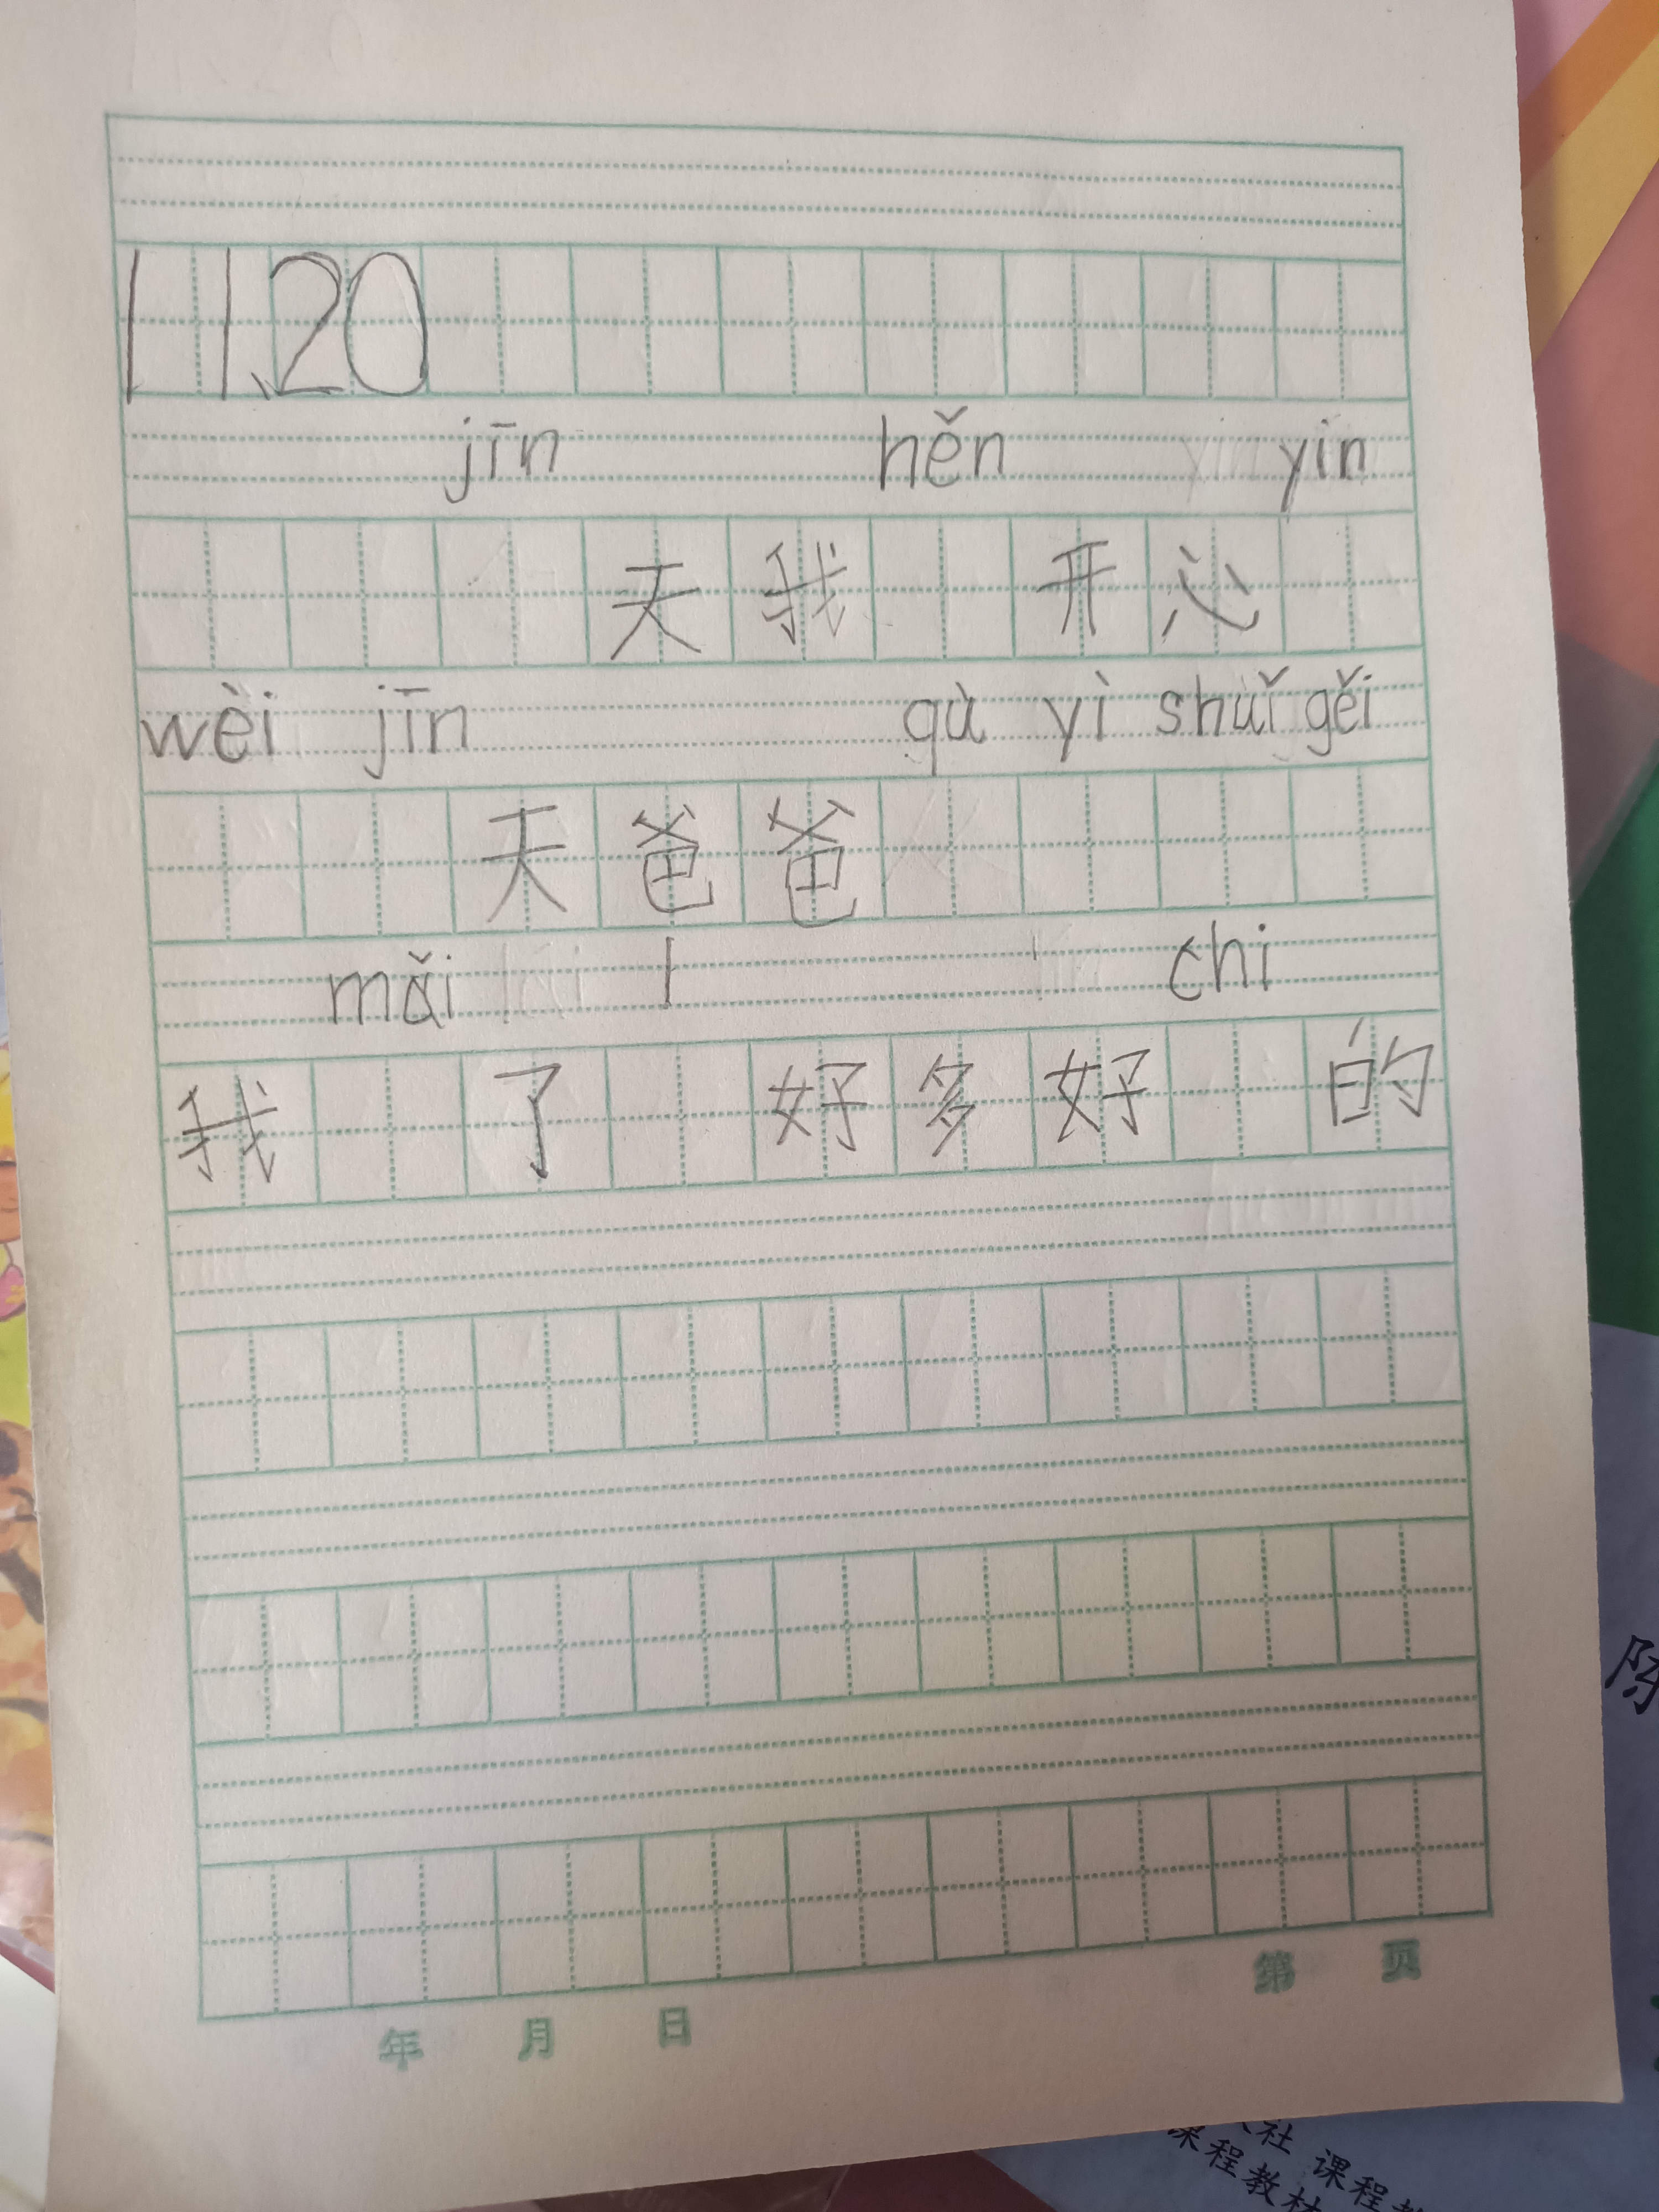 11、20
jīn hěn yin
天我 开心
wèi jīn qù yì shuǐ gěi
天爸爸
mǎi l chi
我 了 好多好 的
年 月 日
第 页
陈
社 课程教
课程教材